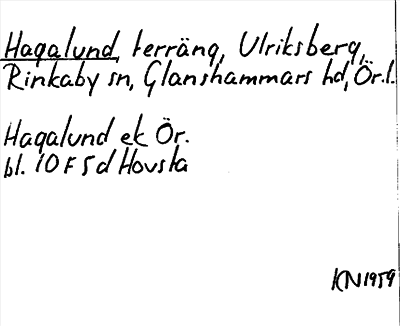 Hagalund, terräng, Ulriksberg,
Rinkaby sn, Glanshammars hd, Ör.l.
Hagalund ek Ör.
bl. 10 F 5 d Hovsta
KN 1959